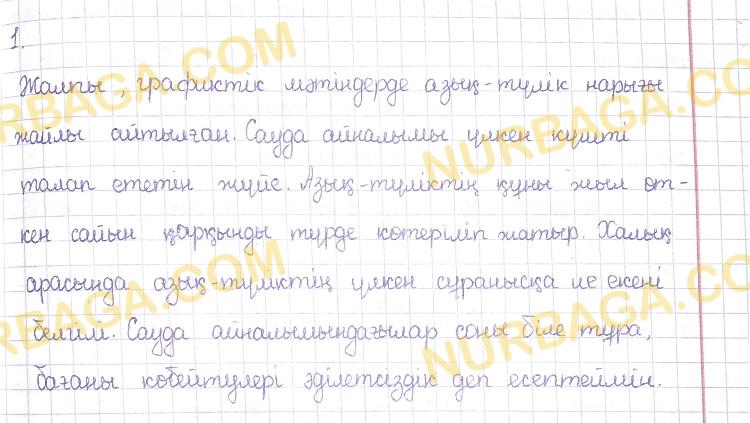 1.
Жалпы, графиктік мәтіндерде азық-түлік нарығы
жайлы айтылған. Сауда айналымы үлкен күшті
талап ететін жүйе. Азық-түліктің құны жыл өт-
кен сайын қарқынды түрде көтеріліп жатыр. Халық
арасында азық-түліктің үлкен сұранысқа ие екені
белгілі. Сауда айналымындағылар соны біле тұра,
бағаны көбейтулері әділетсіздік деп есептеймін.
NURBAGA.COM
NURBAGA.COM
NURBAGA.COM
NURBAGA.COM